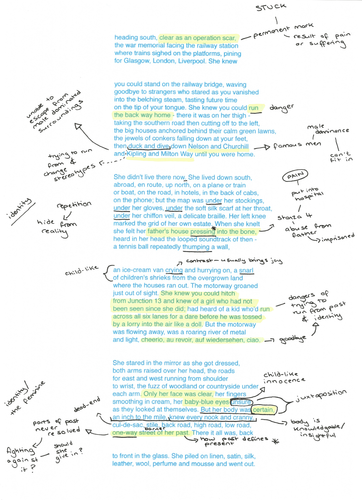 STUCK
heading south, clear as an operation scar,
the war memorial facing the railway station
where trains sighed on the platforms, pining
for Glasgow, London, Liverpool. She knew
permanent mark
result of pain
or suffering
you could stand on the railway bridge, waving
goodbye to strangers who stared as you vanished
into the belching steam, tasting future time
on the tip of your tongue. She knew you could run
the back way home - there it was on her thigh -
taking the southern road then cutting off to the left,
the big houses anchored behind their calm green lawns,
the jewels of conkers falling down at your feet,
then duck and dive down Nelson and Churchill
and Kipling and Milton Way until you were home.
unable to
escape from
male dominated
surroundings
danger
male
dominance
famous men
can't
fit in
trying to run
from & change
stereotypes
She didn't live there now. She lived down south,
abroad, en route, up north, on a plane or train
or boat, on the road, in hotels, in the back of cabs,
on the phone; but the map was under her stockings,
under her gloves, under the soft silk scarf at her throat,
under her chiffon veil, a delicate braille. Her left knee
marked the grid of her own estate. When she knelt
she felt her father's house pressing into the bone,
heard in her head the looped soundtrack of then -
a tennis ball repeatedly thumping a wall,
identity
repetition
hide from
reality
PAIN
put into
hospital
abuse from
father
child-like
contrast - usually brings joy
an ice-cream van crying and hurrying on, a snarl
of children's shrieks from the overgrown land
where the houses ran out. The motorway groaned
just out of sight. She knew you could hitch
from Junction 13 and knew of a girl who had not
been seen since she did; had heard of a kid who'd run
across all six lanes for a dare before he was tossed
by a lorry into the air like a doll. But the motorway
was flowing away, was a roaring river of metal
and light, cheerio, au revoir, auf wiedersehen, ciao.
dangers of
trying to
run from past
& identity
goodbye
She stared in the mirror as she got dressed,
both arms raised over her head, the roads
for east and west running from shoulder
to wrist, the fuzz of woodland or countryside under
each arm. Only her face was clear, her fingers
smoothing in cream, her baby-blue eyes unsure
as they looked at themselves. But her body was certain,
an inch to the mile, knew every nook and cranny,
cul-de-sac, stile, back road, high road, low road,
one-way street of her past. There it all was, back
child-like
innocence
juxtaposition
identity/
the feminine
dead-end
parts of past
never resolved
fighting
against
it?
should
she
give in?
body is
knowledgeable/
insightful
how past defines
present
to front in the glass. She piled on linen, satin, silk,
leather, wool, perfume and mousse and went out.